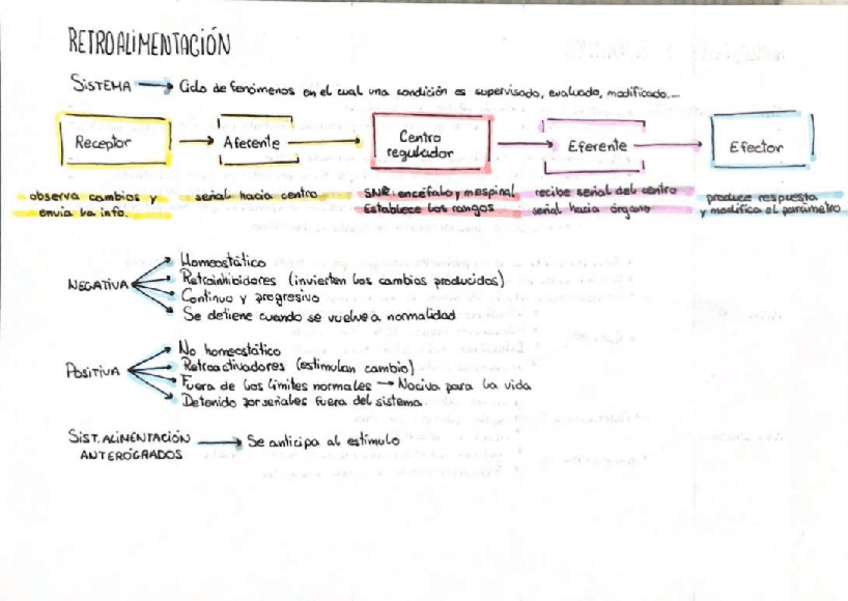 RETROALIMENTACIÓN
SISTEMA → Ciclo de fenómenos en el cual una condición es supervisado, evaluado, modificado...
Receptor → Aferente → Centro regulador → Eferente → Efector
observa cambios y envia la info.
señal hacia centro
SNC: encéfalo y m.espinal
Establece los rangos
recibe señal del centro
señal hacia órgano
produce respuesta
y modifica el parámetro
NEGATIVA
Homeostático
Retroinhibidores (invierten los cambios producidos)
Continuo y progresivo
Se detiene cuando se vuelve a normalidad
POSITIVA
No homeostático
Retroactivadores (estimulan cambio)
Fuera de los límites normales → Nociva para la vida
Detenido por señales fuera del sistema
SIST. ALIMENTACIÓN ANTEROGRADOS → Se anticipa al estímulo